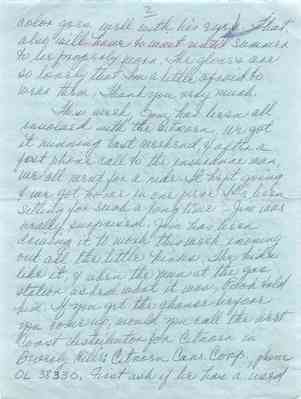 2
color goes well with his eyes. That
also will have to wait until summer
to be properly worn. The gloves are
so lovely that I'm a little afraid to
wear them. Thank you very much.
This week, Jim has been all
involved with the Citroen. We got
it running last weekend, & after a
fast phone call to the insurance man,
we all went for a ride. It kept going
& we got home in one piece. It's been
sitting for such a long time. Jim was
really surprised. Jim has been
driving it to work this week ironing
out all the little kinks. The kids
like it, & when the man at the gas
station asked what it was, told
him. If you get the chance before
you come up, would you call the West
Coast distributor for Citroen in
Beverly Hills Citroen Cars Corp., phone
OL 38330. First ask if he has a used